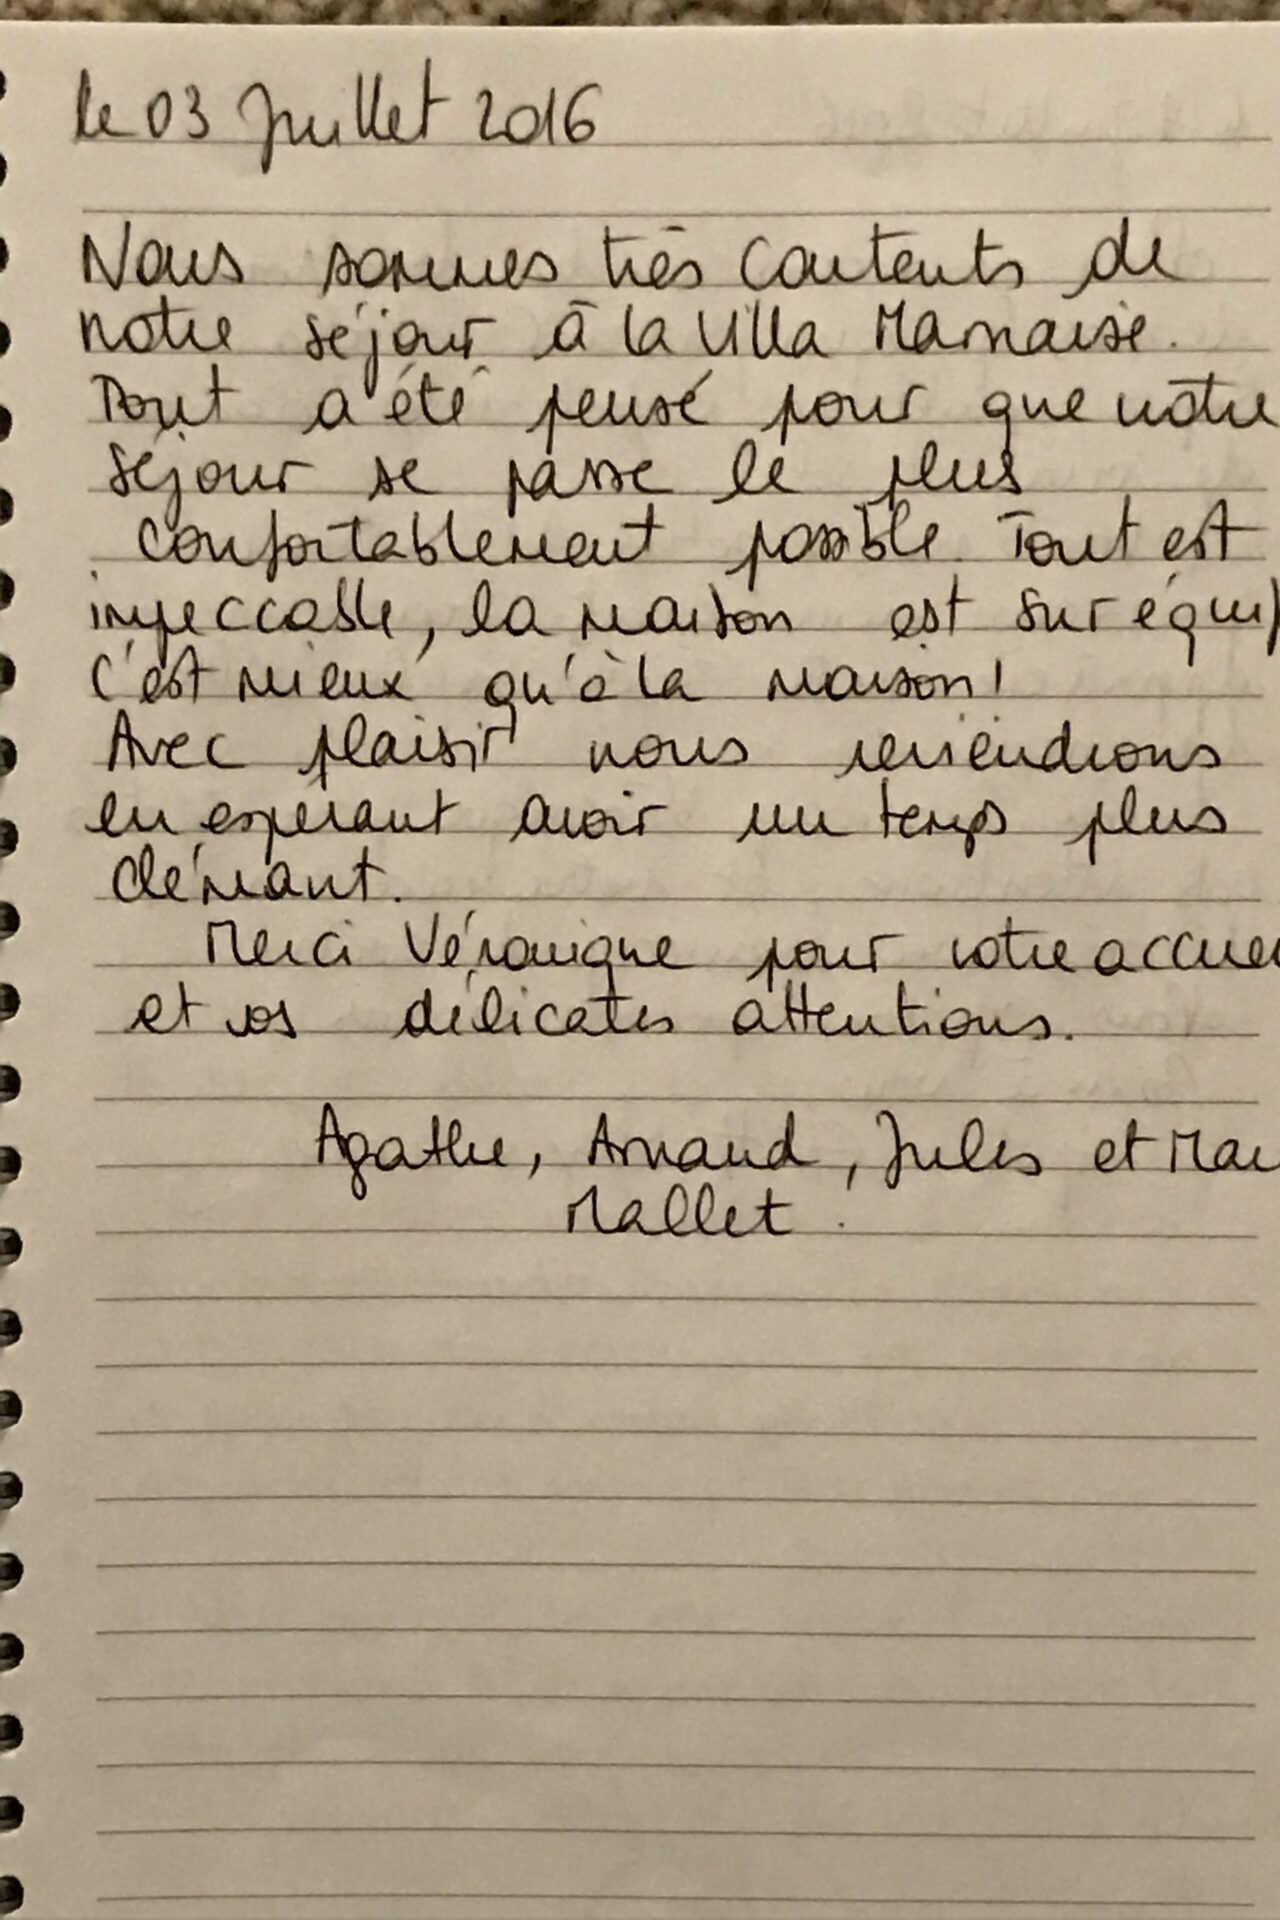 le 03 Juillet 2016
Nous sommes très contents de
notre séjour à la Villa Marnaise.
Tout a été pensé pour que notre
séjour se passe le plus
confortablement possible. Tout est
impeccable, la maison est sur équip
C'est mieux qu'à la maison!
Avec plaisir nous reviendrons
en espérant avoir un temps plus
clément.
Merci Véronique pour votre accuei
et vos délicates attentions.
Agathe, Arnaud, Jules et
Mallet.